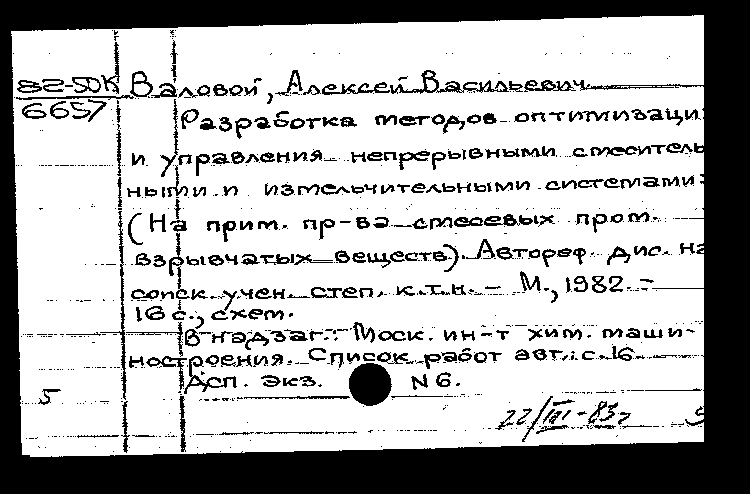 82-50К Валовой, Алексей Васильевич
6657
Разработка методов оптимизаци
и управления непрерывными смеситель
ными и измельчительными системами:
(На прим. пр-ва смесевых пром.
взрывчатых веществ). Автореф. дис. на
соиск. учен. степ. к.т.н. - М., 1982. -
16 с., схем.
В надзаг.: Моск. ин-т хим. маши-
ностроения. Список работ авт.: с. 16
Дсп. экз. N 6.
5
22/III-83г